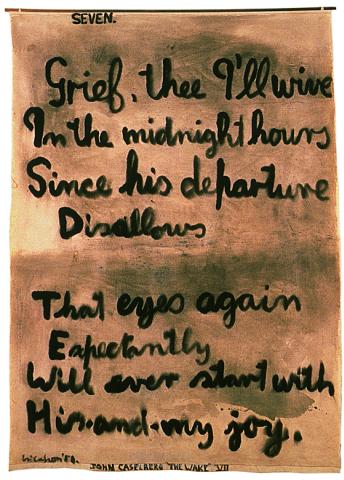 SEVEN.
Grief, thee I'll wive
In the midnight hours
Since his departure
Disallows
That eyes again
Expectantly
Will ever start with
His-and-my joy.
McCahon '58.
JOHN CASELBERG 'THE WAKE' VII